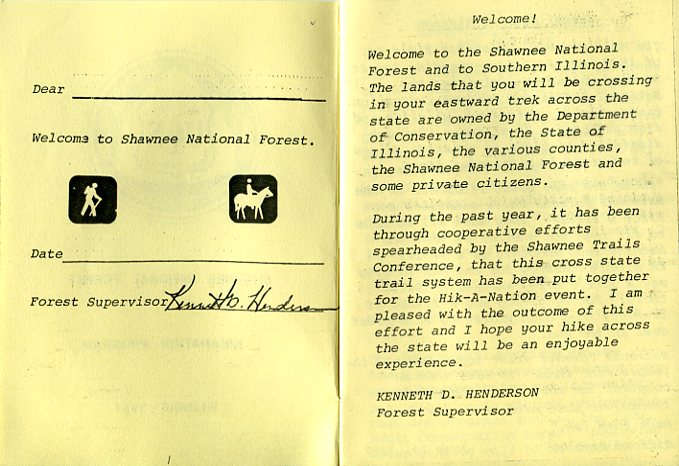 Dear
Welcome to Shawnee National Forest.
Date
Forest Supervisor Kenneth D. Henderson
Welcome!
Welcome to the Shawnee National
Forest and to Southern Illinois.
The lands that you will be crossing
in your eastward trek across the
state are owned by the Department
of Conservation, the State of
Illinois, the various counties,
the Shawnee National Forest and
some private citizens.
During the past year, it has been
through cooperative efforts
spearheaded by the Shawnee Trails
Conference, that this cross state
trail system has been put together
for the Hik-A-Nation event.  I am
pleased with the outcome of this
effort and I hope your hike across
the state will be an enjoyable
experience.
KENNETH D. HENDERSON
Forest Supervisor